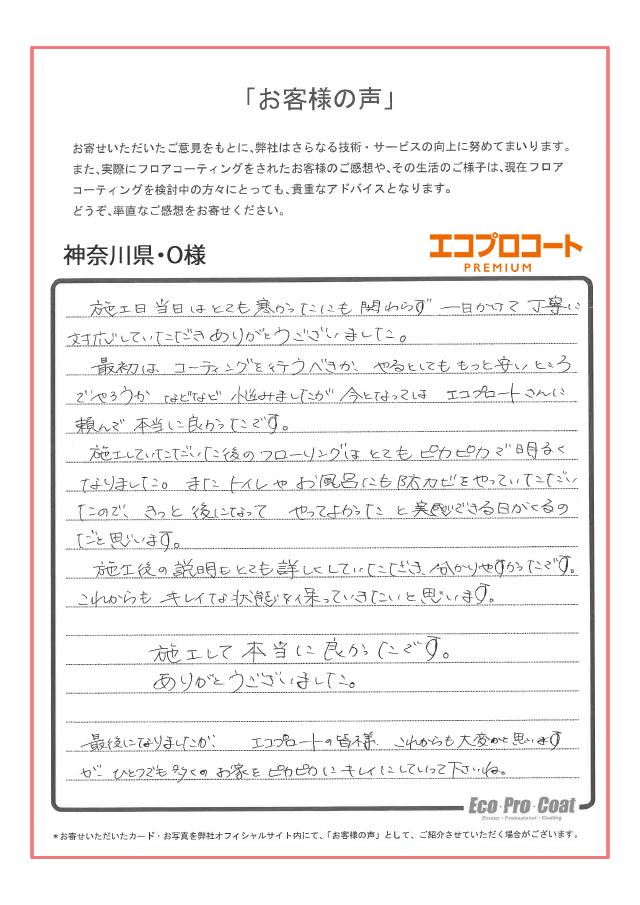 「お客様の声」
お寄せいただいたご意見をもとに、弊社はさらなる技術・サービスの向上に努めてまいります。
また、実際にフロアコーティングをされたお客様のご感想や、その生活のご様子は、現在フロア
コーティングを検討中の方々にとっても、貴重なアドバイスとなります。
どうぞ、率直なご感想をお寄せください。
神奈川県・O様
エコプロコート
PREMIUM
施工日当日はとても寒かったにも関わらず一日かけて丁寧に
対応していただきありがとうございました。
最初は、コーティングを行うべきか、やるとしてももっと安いところ
でやろうかなどなど悩みましたが今となってはエコプロートさんに
頼んで本当に良かったです。
施工していただいた後のフローリングはとてもピカピカで明るく
なりました。またトイレやお風呂にも防カビをやっていただい
たので、きっと後になってやってよかったと実感できる日がくるの
だと思います。
施工後の説明もとても詳しくしていただき、分かりやすかったです。
これからもキレイな状態を保っていきたいと思います。
施工して本当に良かったです。
ありがとうございました。
最後になりましたが、エコプロートの皆様、これからも大変かと思います
が、ひとつでも多くのお家をピカピカにキレイにしていって下さいね。
Eco・Pro・Coat
Ecotec・Professional・Coating
*お寄せいただいたカード・お写真を弊社オフィシャルサイト内にて、「お客様の声」として、ご紹介させていただく場合がございます。